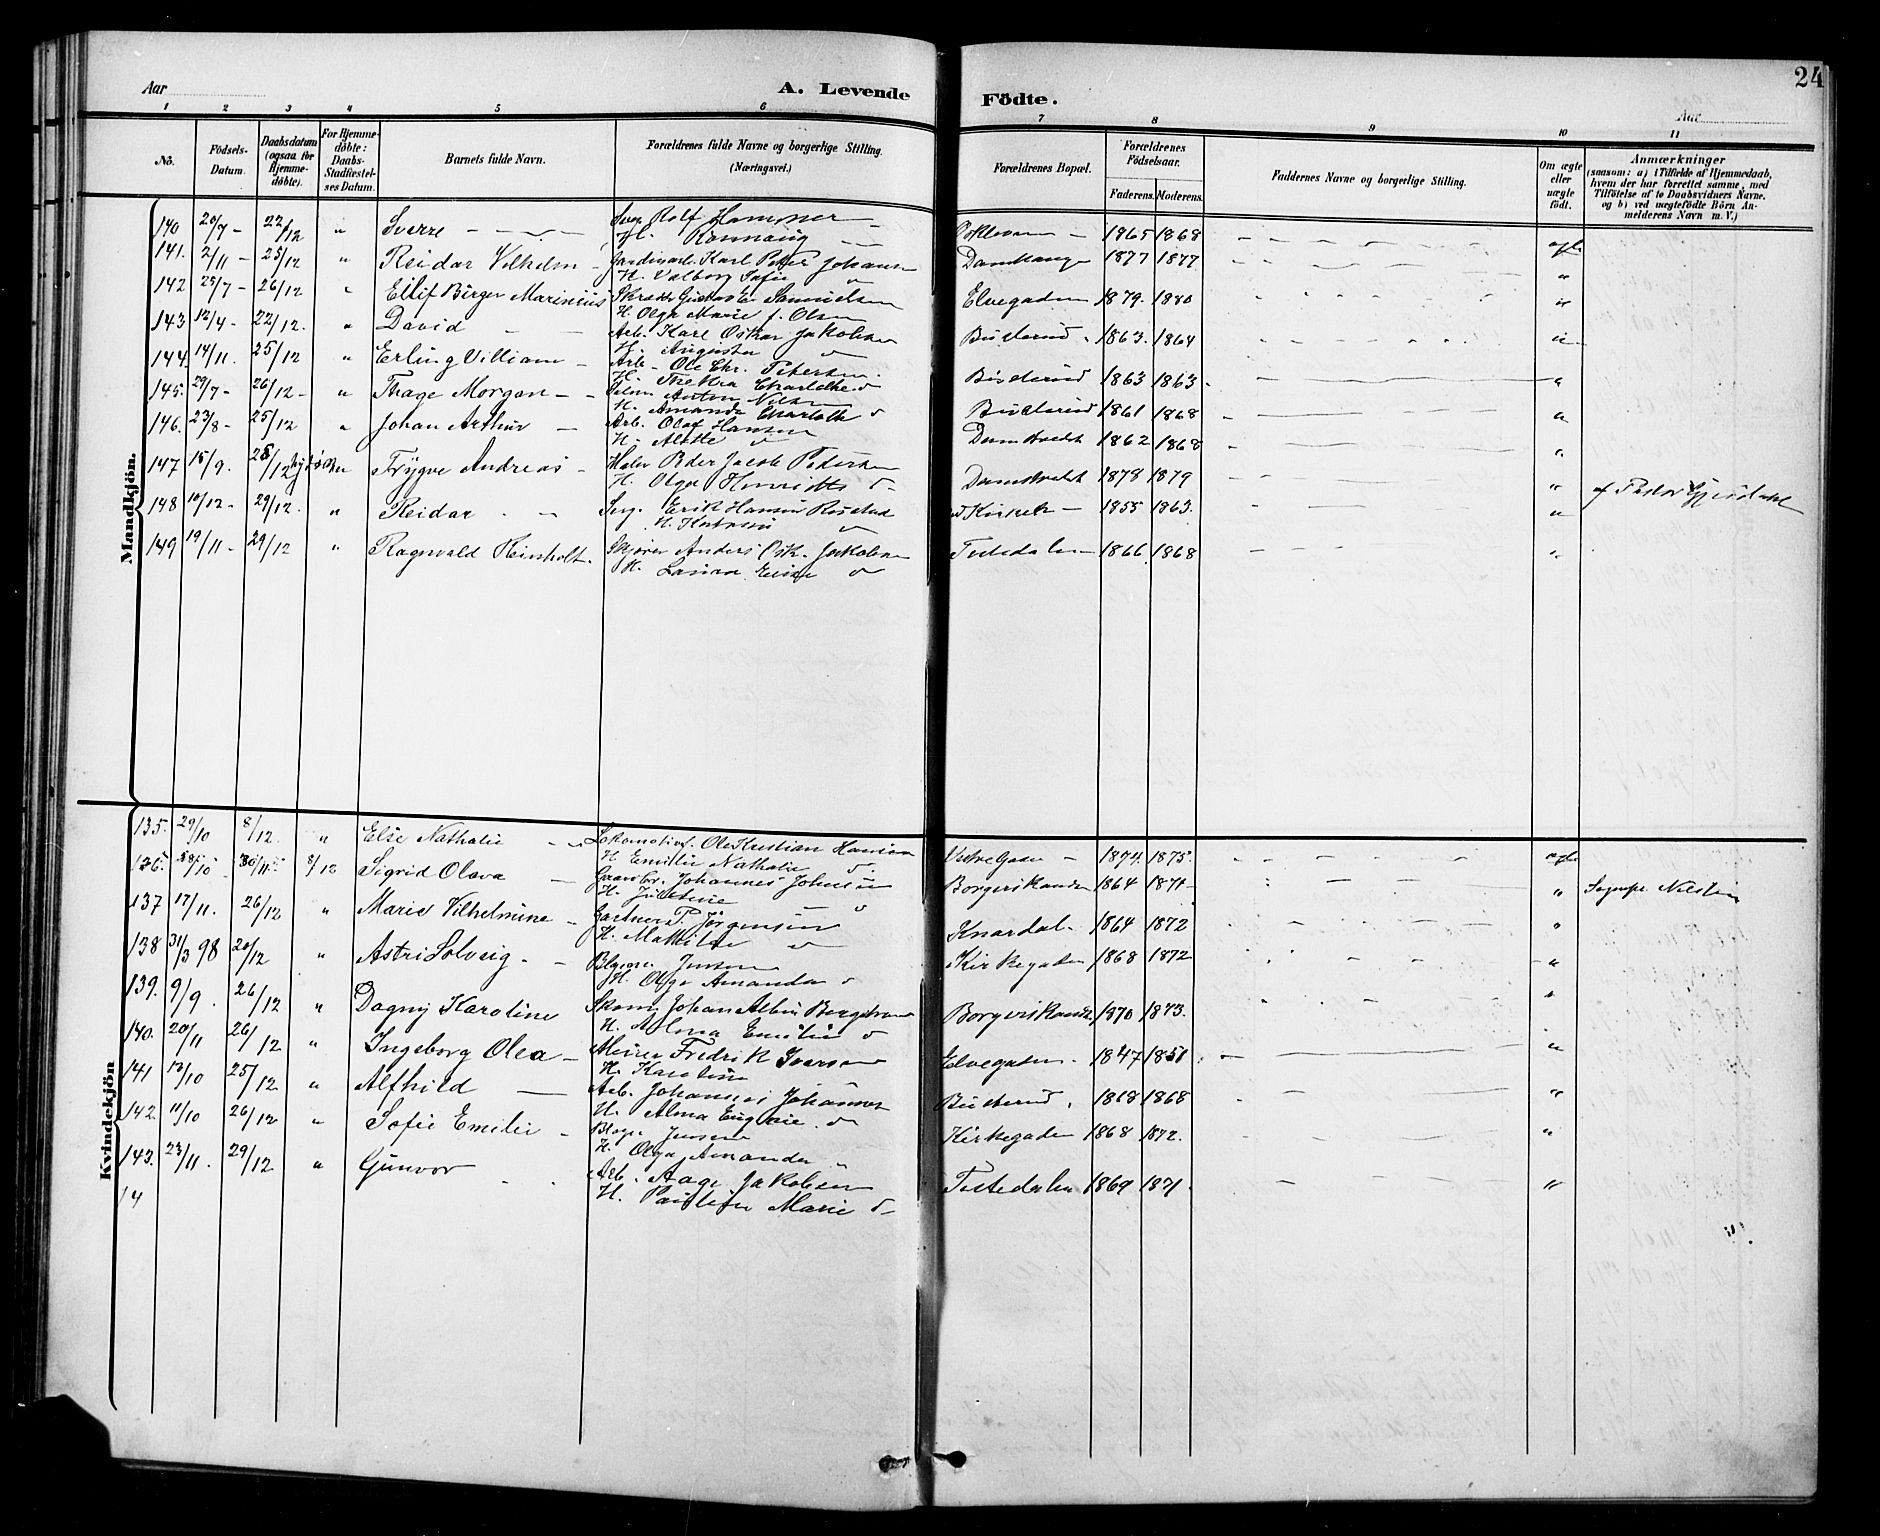 24
Aar
A. Levende
Födte.
Aar
1 2 3 4 5 6 7 8 9 10 11
No.
Födsels-Datum.
Daabsdatum (ogsaa for Hjemmedöbte).
For Hjemmedöbte: Daabs-Stadfæstelses Datum.
Barnets fulde Navn.
Forældrenes fulde Navne og borgerlige Stilling. (Næringsvei.)
Forældrenes Bopæl.
Forældrenes Födselsaar.
Faderens. Moderens.
Faddernes Navne og borgerlige Stilling.
Om ægte eller uægte födt.
Anmærkninger
(saasom: a) i Tilfælde af Hjemmedaab, hvem der har forrettet samme, med Tilföielse af to Daabsvidners Navne, og b) ved uægtefödte Börn Anmelderens Navn m. V.)
Mandkjön.
140 20/7 - 22/12 " Sverre - Rolf Hammer - 1865 1868 ægte
H. Rannaug
141. 2/11 - 25/12 " Reidar Vilhelm - Karl Peter Johansen 1877 1877 "
H. Valborg Sofie
142 25/7 - 26/12 " Eilif Birger Marinius Skrædder Gustav Samuelsen Elvegaden 1879. 1880 "
H. Olga Marie f. Olsen
143 12/4 - 22/12. " David - Arb. Karl Oskar Jakobsen Busterud. 1863. 1864 "
H. Augusta
144. 14/11. 25/12 " Erling Villiam - Arb - Ole Chr. Petersen. Busterud 1863 1863. "
H. Thekra Charlotte
145. 29/7 - 26/12 - " Thage Morgan - Anton Nilsen Busterud 1861 1868 "
H. Amanda Charlotte
146. 23/8 - 25/12 " Johan Arthur - Arb. Olaf Hansen Damstredet 1862 1868 "
H.
147 15/9. 28/12 Trygve Andreas - Maler Peder Jacob Pedersen Damstredet 1878 1879 " af Pastor Gjesdahl
H. Olga Henriette
148 10/12 - 29/12. " Reidar - Erik Hansen Rustad Kirkeb - 1855 1863. "
H.
149 19/11 - 29/12 " Ragnvald Reinholt. Skjörer Anders Osk. Jakobsen Tistedalen 1866 1868 "
H. Lovisa
Kvindekjön
135. 29/10 8/12. " Else Nathalie - Lokomotivf. Ole Kristian Hansen Vestre Gade - 1874. 1875. ægte
H. Emilie Nathalie
136. 28/10 30/11 8/12 Sigrid Olava - Gaardbr. Johannes Johnsen Borgerskanden 1864 1871 - " Sognepr. Nilsen
H. Julstine
137 17/11. 26/12 " Marie Vilhelmine - Gartner P. Jörgensen Knardal. 1864 1872 "
H. Mathilde
138 31/3 98 20/12 " Astri Solveig. - Jensen Kirkegaden 1868 1872 - "
H. Olga Amanda
139. 9/9. 26/12 " Dagny Karoline Skom. Johan Albin Bergstrøm Borgerskanden 1870 1873. "
H. Alma Emilie
140. 20/11 26/12 " Ingeborg Olea - Murer Fredrik Iversen Elvegaden. 1847 1851. "
H. Karoline
141 12/10 25/12 " Alfhild - Arb. Johannes Johansen Busterud. 1868 1868 "
H. Alma Eugenie.
142. 11/10 26/12 " Sofie Emilie - Jensen Kirkegaden 1868 1872. "
H. Olga Amanda
143. 23/11. 29/12 " Gunvor Arb. Aage Jakobsen Tistedalen 1869 1871. "
H. Pauline Marie
14